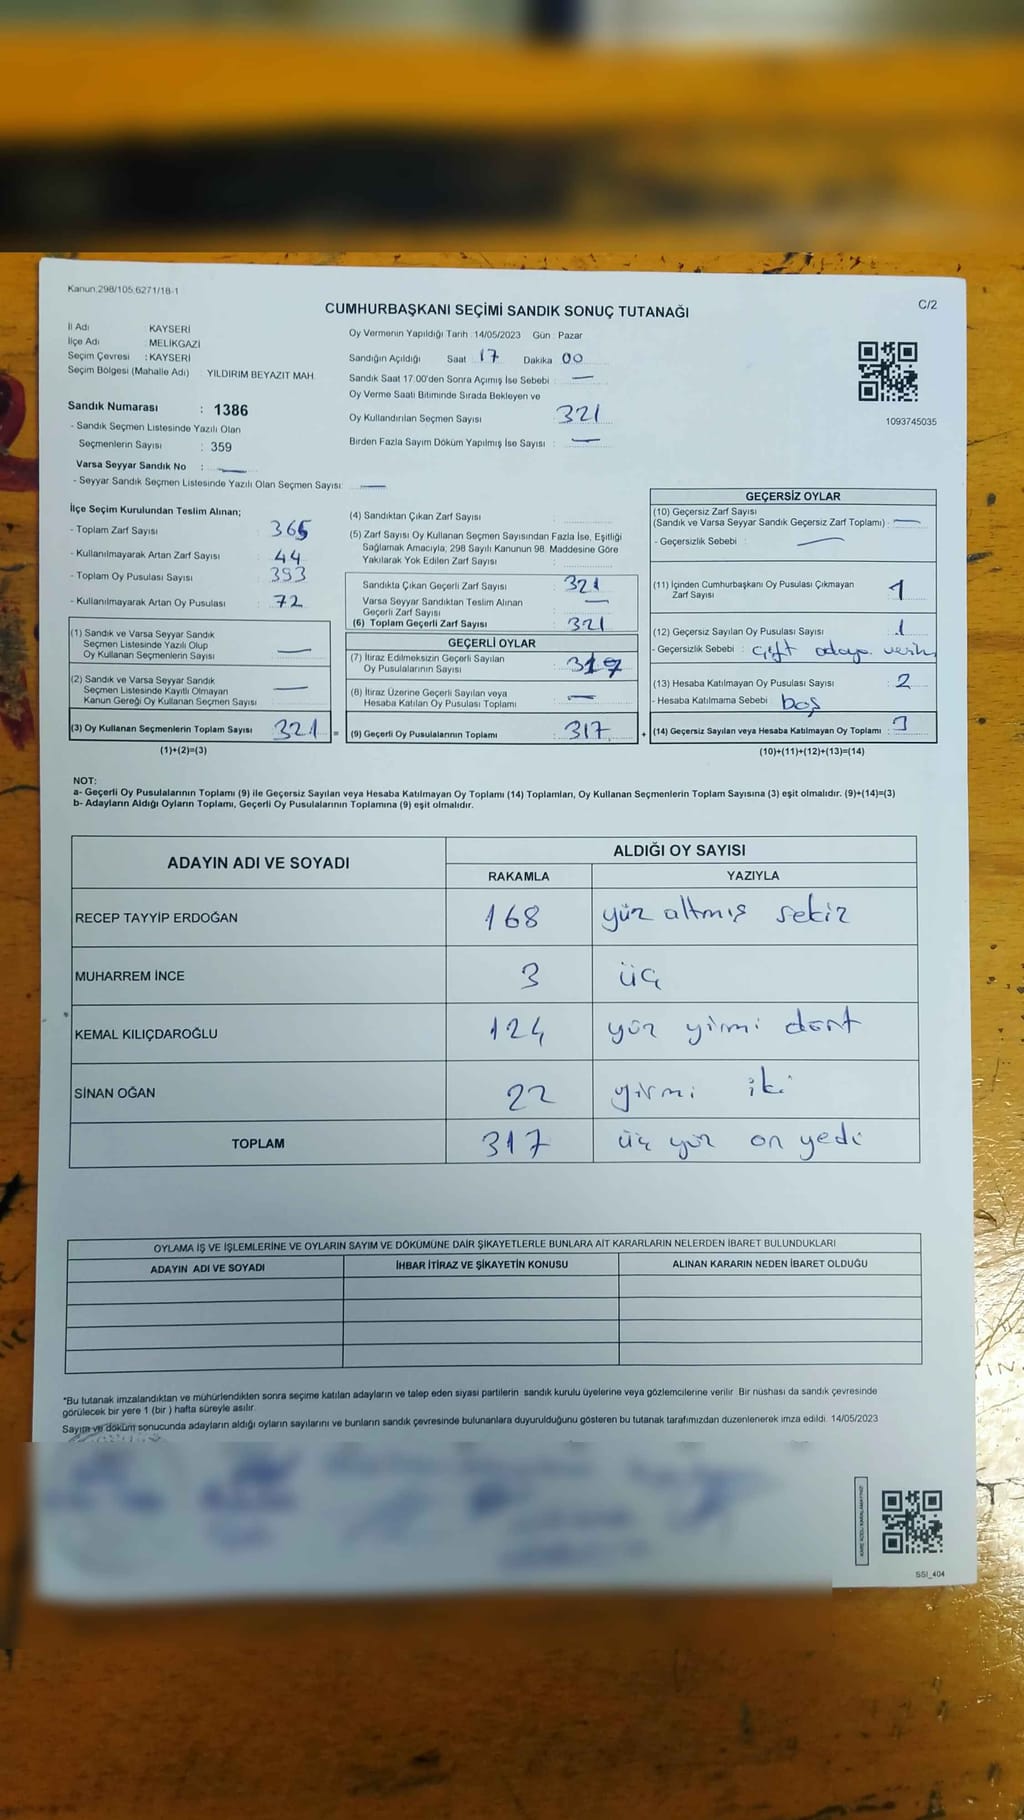 Kanun:298/105,6271/18-1
CUMHURBAŞKANI SEÇİMİ SANDIK SONUÇ TUTANAĞI
C/2
İl Adı : KAYSERİ
İlçe Adı : MELİKGAZİ
Seçim Çevresi : KAYSERİ
Seçim Bölgesi (Mahalle Adı) : YILDIRIM BEYAZIT MAH.
Sandık Numarası : 1386
- Sandık Seçmen Listesinde Yazılı Olan
Seçmenlerin Sayısı : 359
Varsa Seyyar Sandık No : —
- Seyyar Sandık Seçmen Listesinde Yazılı Olan Seçmen Sayısı: —
Oy Vermenin Yapıldığı Tarih : 14/05/2023 Gün : Pazar
Sandığın Açıldığı Saat 17 Dakika 00
Sandık Saat 17:00'den Sonra Açımış İse Sebebi : —
Oy Verme Saati Bitiminde Sırada Bekleyen ve
Oy Kullandırılan Seçmen Sayısı : 321
Birden Fazla Sayım Döküm Yapılmış İse Sayısı : —
1093745035
İlçe Seçim Kurulundan Teslim Alınan;
- Toplam Zarf Sayısı : 365
- Kullanılmayarak Artan Zarf Sayısı : 44
- Toplam Oy Pusulası Sayısı : 393
- Kullanılmayarak Artan Oy Pusulası : 72
(1) Sandık ve Varsa Seyyar Sandık
Seçmen Listesinde Yazılı Olup
Oy Kullanan Seçmenlerin Sayısı : —
(2) Sandık ve Varsa Seyyar Sandık
Seçmen Listesinde Kayıtlı Olmayan
Kanun Gereği Oy Kullanan Seçmen Sayısı : —
(3) Oy Kullanan Seçmenlerin Toplam Sayısı : 321 =
(1)+(2)=(3)
(4) Sandıktan Çıkan Zarf Sayısı :
(5) Zarf Sayısı Oy Kullanan Seçmen Sayısından Fazla İse, Eşitliği
Sağlamak Amacıyla, 298 Sayılı Kanunun 98. Maddesine Göre
Yakılarak Yok Edilen Zarf Sayısı :
Sandıkta Çıkan Geçerli Zarf Sayısı : 321
Varsa Seyyar Sandıktan Teslim Alınan
Geçerli Zarf Sayısı : —
(6) Toplam Geçerli Zarf Sayısı : 321
GEÇERLİ OYLAR
(7) İtiraz Edilmeksizin Geçerli Sayılan
Oy Pusulalarının Sayısı : 317
(8) İtiraz Üzerine Geçerli Sayılan veya
Hesaba Katılan Oy Pusulası Toplamı : —
(9) Geçerli Oy Pusulalarının Toplamı : 317 +
GEÇERSİZ OYLAR
(10) Geçersiz Zarf Sayısı
(Sandık ve Varsa Seyyar Sandık Geçersiz Zarf Toplamı) : —
- Geçersizlik Sebebi : —
(11) İçinden Cumhurbaşkanı Oy Pusulası Çıkmayan
Zarf Sayısı : 1
(12) Geçersiz Sayılan Oy Pusulası Sayısı : 1
- Geçersizlik Sebebi : çift adaya
(13) Hesaba Katılmayan Oy Pusulası Sayısı : 2
- Hesaba Katılmama Sebebi : boş
(14) Geçersiz Sayılan veya Hesaba Katılmayan Oy Toplamı : 3
(10)+(11)+(12)+(13)=(14)
NOT:
a- Geçerli Oy Pusulalarının Toplamı (9) ile Geçersiz Sayılan veya Hesaba Katılmayan Oy Toplamı (14) Toplamları, Oy Kullanan Seçmenlerin Toplam Sayısına (3) eşit olmalıdır. (9)+(14)=(3)
b- Adayların Aldığı Oyların Toplamı, Geçerli Oy Pusulalarının Toplamına (9) eşit olmalıdır.
ADAYIN ADI VE SOYADI
ALDIĞI OY SAYISI
RAKAMLA YAZIYLA
RECEP TAYYİP ERDOĞAN 168 yüz altmış sekiz
MUHARREM İNCE 3 üç
KEMAL KILIÇDAROĞLU 124 yüz yirmi dört
SİNAN OĞAN 22 yirmi iki
TOPLAM 317 üç yüz on yedi
OYLAMA İŞ VE İŞLEMLERİNE VE OYLARIN SAYIM VE DÖKÜMÜNE DAİR ŞİKAYETLERLE BUNLARA AİT KARARLARIN NELERDEN İBARET BULUNDUKLARI
ADAYIN ADI VE SOYADI İHBAR İTİRAZ VE ŞİKAYETİN KONUSU ALINAN KARARIN NEDEN İBARET OLDUĞU
*Bu tutanak imzalandıktan ve mühürlendikten sonra seçime katılan adayların ve talep eden siyasi partilerin sandık kurulu üyelerine veya gözlemcilerine verilir. Bir nüshası da sandık çevresinde
görülecek bir yere 1 (bir ) hafta süreyle asılır.
Sayım ve döküm sonucunda adayların aldığı oyların sayılarını ve bunların sandık çevresinde bulunanlara duyurulduğunu gösteren bu tutanak tarafımızdan düzenlenerek imza edildi. 14/05/2023
SSI_404